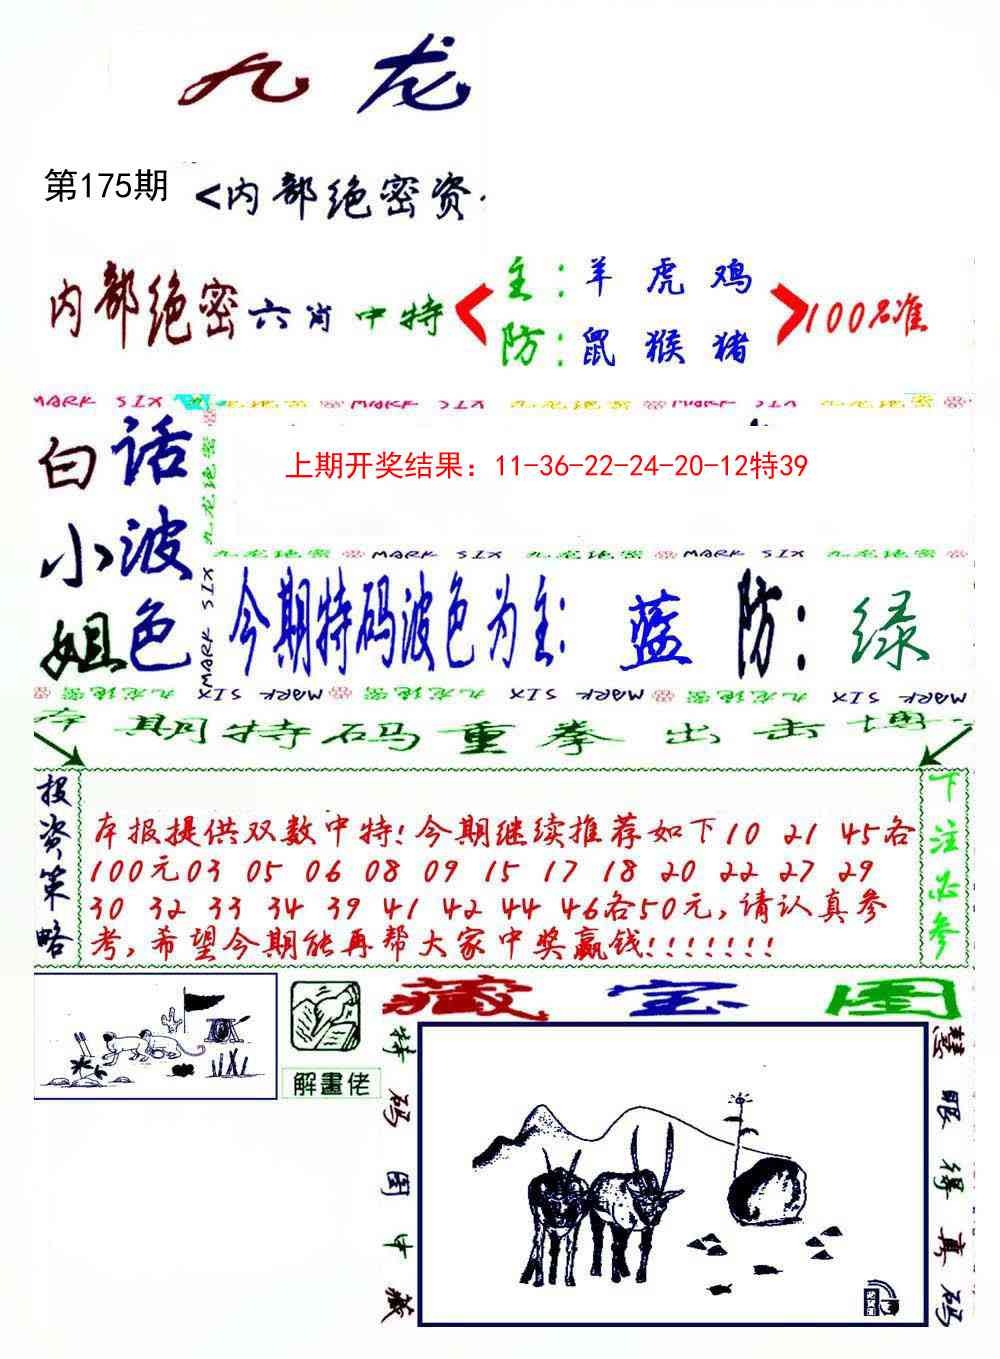 九龙
第175期 <内部绝密资
内部绝密六肖中特
主：羊 虎 鸡
防：鼠 猴 猪
100%准
MARK SIX 九龙绝密 MARK SIX 九龙绝密 MARK SIX 九龙绝密
白话
小波
姐色
九龙绝密
MARK SIX
上期开奖结果：11-36-22-24-20-12特39
九龙绝密 MARK SIX 九龙绝密 MARK SIX 九龙绝密
今期特码波色为主：蓝 防：绿
MARK SIX 九龙绝密 MARK SIX 九龙绝密 MARK SIX 九龙绝密 MARK SIX
本期特码重拳出击
投资策略
本报提供双数中特!今期继续推荐如下10 21 45各
100元03 05 06 08 09 15 17 18 20 22 27 29
30 32 33 34 39 41 42 44 46各50元,请认真参
考,希望今期能再帮大家中奖赢钱!!!!!!!
下注必参
解畫佬
藏宝图
特码图中藏
慧眼得真码